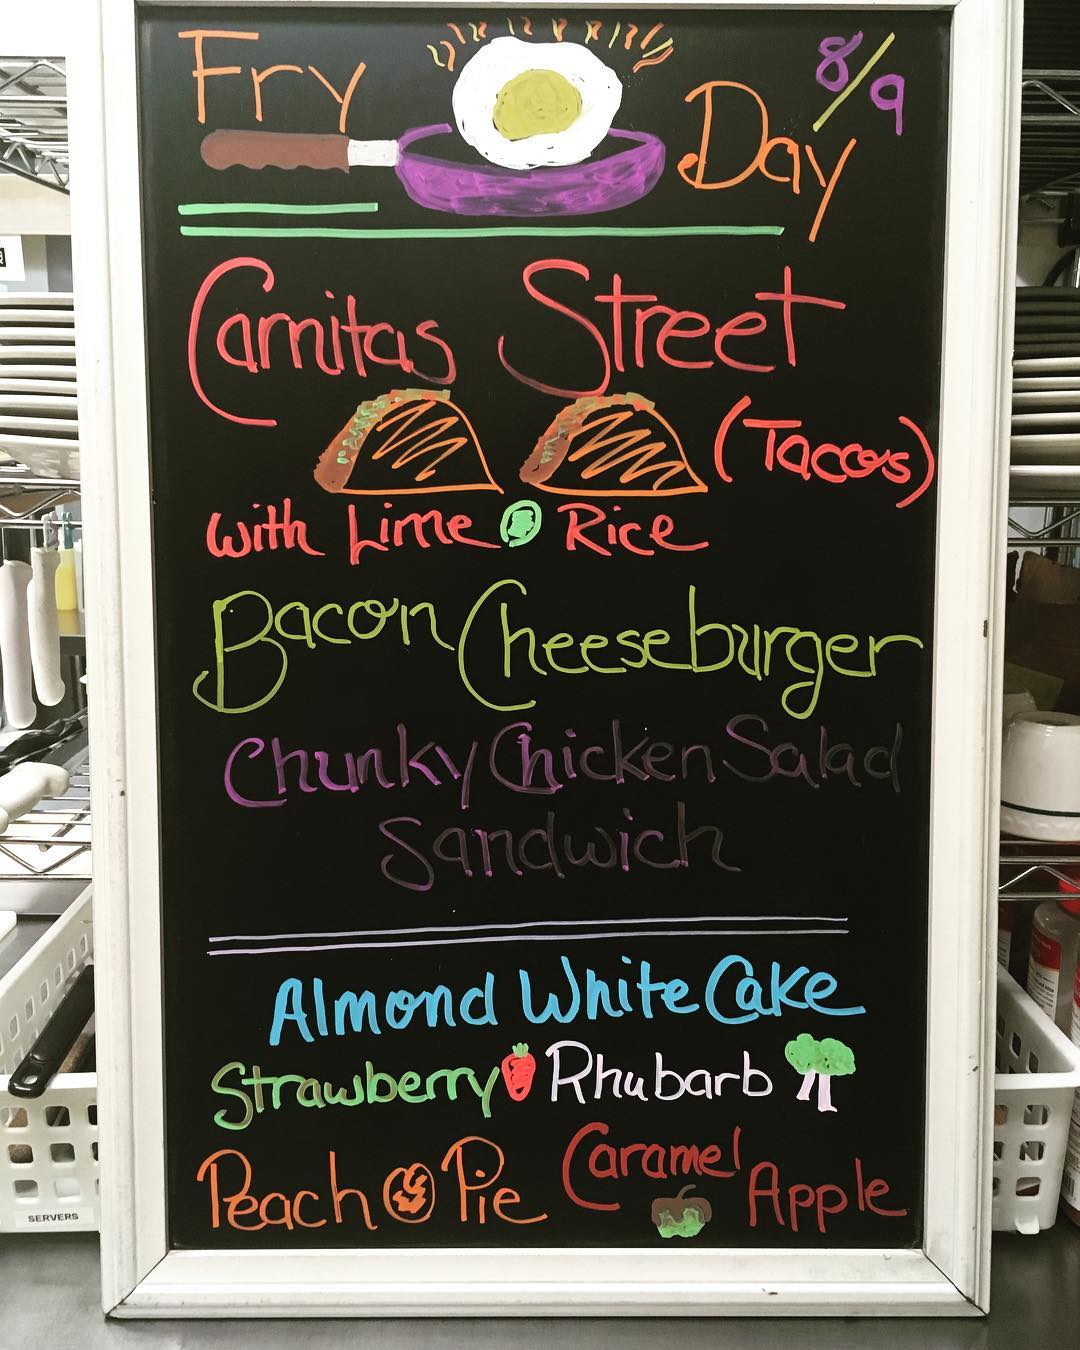 Fry Day 8/9
Carnitas Street
(Tacos)
with Lime Rice
Bacon Cheeseburger
Chunky Chicken Salad
Sandwich
Almond White Cake
Strawberry Rhubarb
Peach Pie Caramel Apple
SERVERS